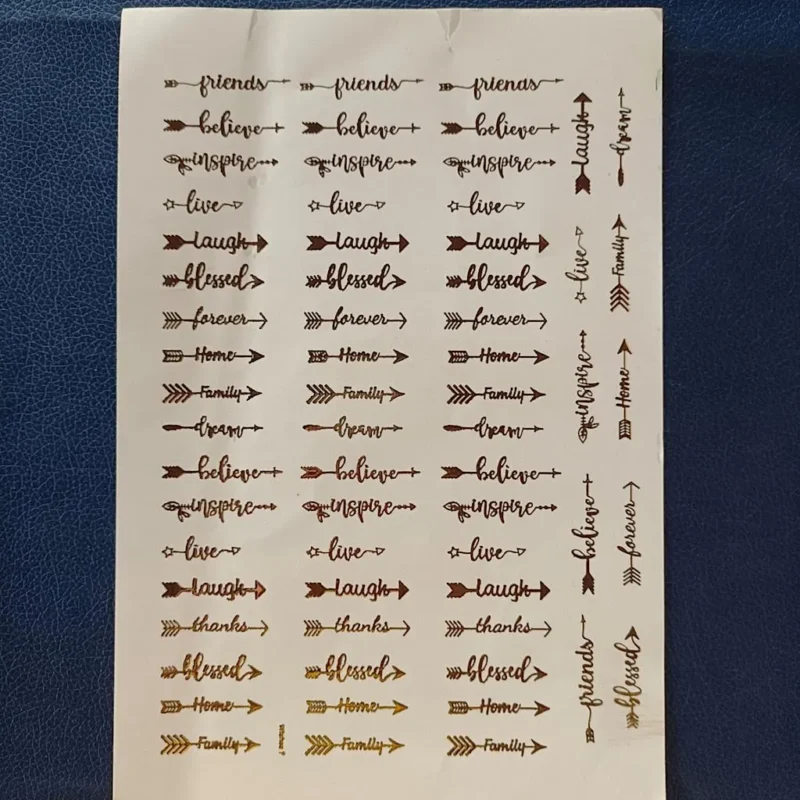 friends friends friends
believe believe believe
inspire inspire inspire
live live live
laugh laugh laugh
blessed blessed blessed
forever forever forever
Home Home Home
Family Family Family
dream dream dream
believe believe believe
inspire inspire inspire
live live live
laugh laugh laugh
thanks thanks thanks
blessed blessed blessed
Home Home Home
Family Family Family
laugh dream
live Family
inspire Home
believe forever
friends blessed